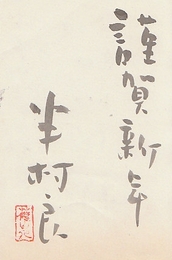 謹賀新年
半村良